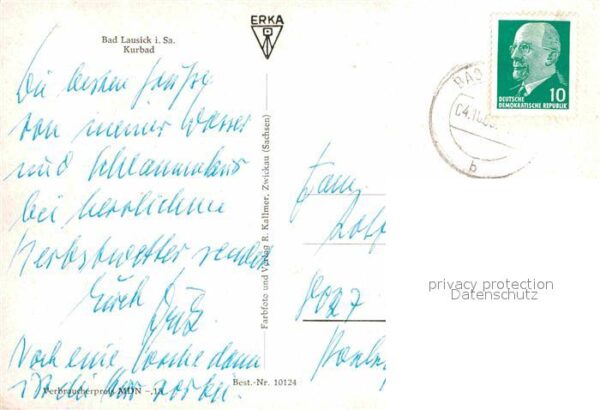 Bad Lausick i. Sa.
Kurbad
ERKA
Die besten Grüße
von meiner Wasser
und Schlammkur
bei herrlichem
Herbstwetter sendet
Euch
Noch eine Woche dann
ist die Kur vorbei.
Verbraucherpreis MDN -,15
Best.-Nr. 10124
Farbfoto und Verlag R. Kallmer, Zwickau (Sachsen)
10
DEUTSCHE
DEMOKRATISCHE REPUBLIK
BAD
04.10.
b
Fam.
privacy protection
Datenschutz